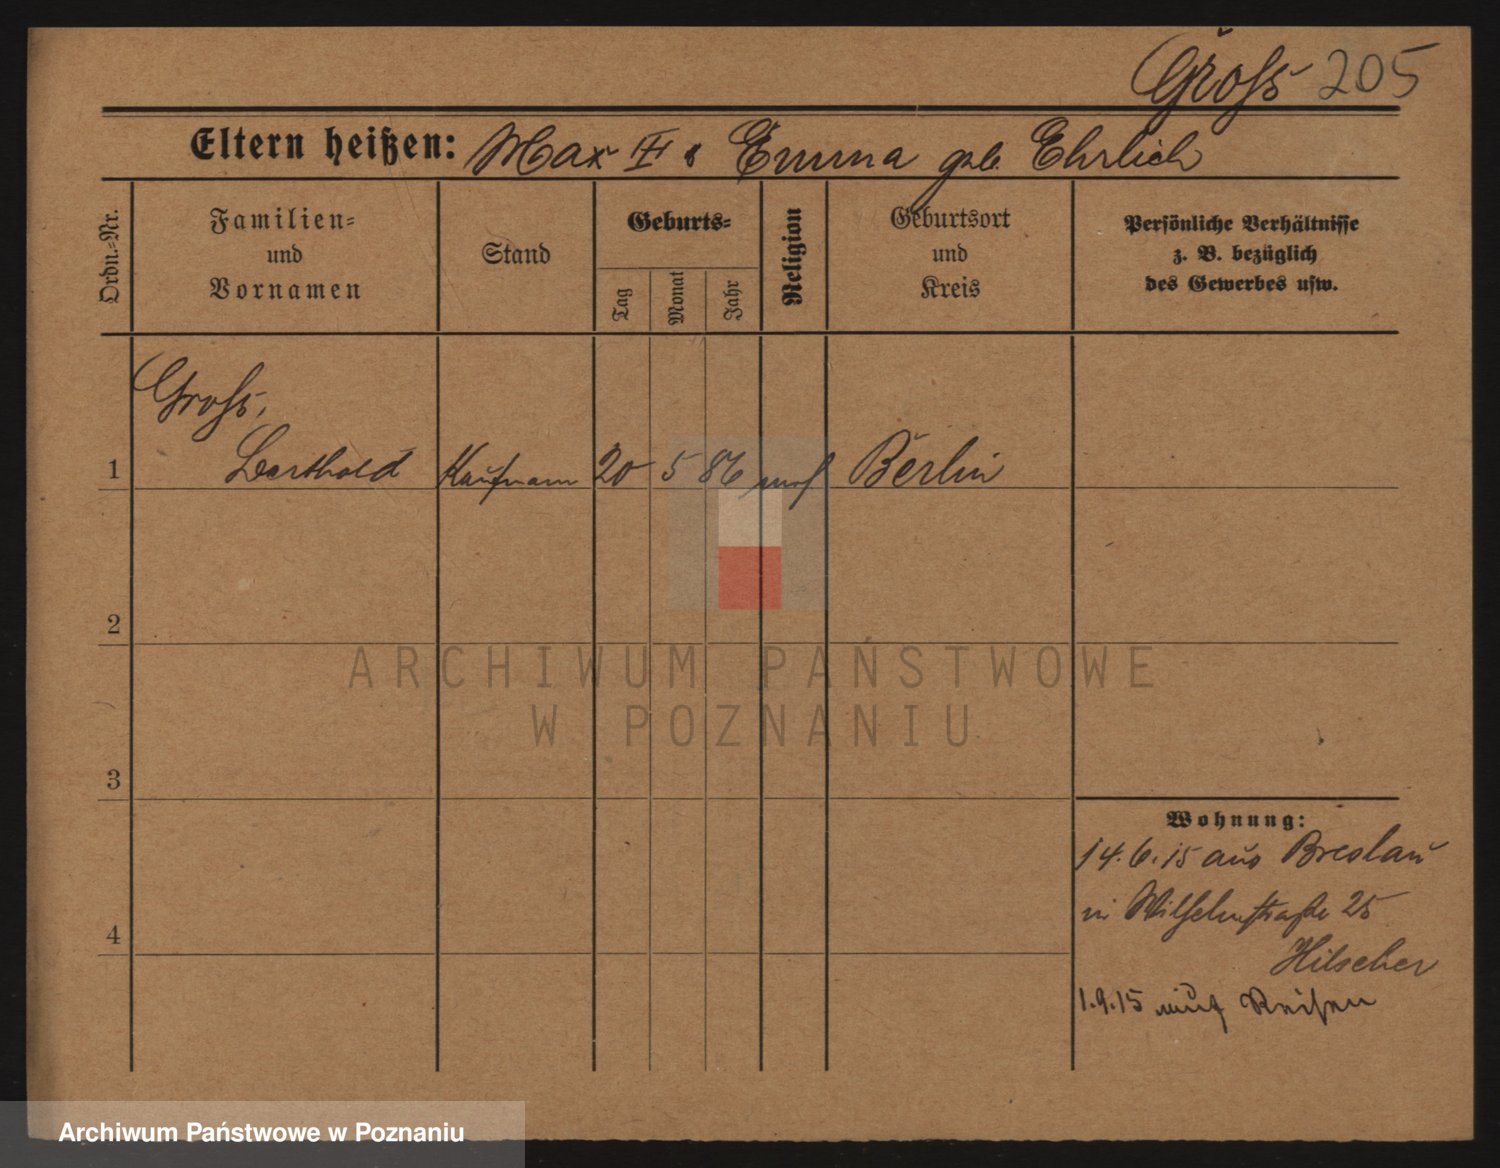 Groß 205
Eltern heißen: Max III & Emma geb. Ehrlich
Ordn.=Nr.
Familien=
und
Vornamen
Stand
Geburts=
Tag
Monat
Jahr
Religion
Geburtsort
und
Kreis
Persönliche Verhältnisse
z. B. bezüglich
des Gewerbes usw.
Groß,
1 Berthold Kaufmann 20 5 86 mos Berlin
2
3
4
Wohnung:
14.6.15 aus Breslau
in Wilhelmstraße 25
Hilscher
1.9.15 auf Reisen
ARCHIWUM PAŃSTWOWE
W POZNANIU
Archiwum Państwowe w Poznaniu